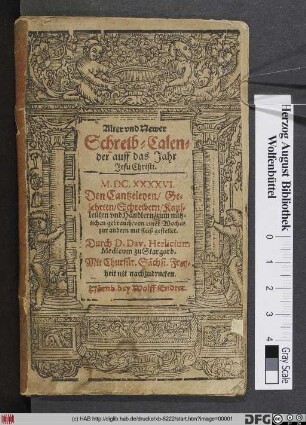 Alter vnd Newer
Schreib-Calen-
der auff das Jahr
Jesu Christi.
M. DC. XXXXVI.
Den Cantzeleyen / Ge-
lehrten / Schreibern / Kauff-
leuten vnd Händlern / zum nütz-
lichen gebrauch / von einer Wochen
zur andern mit fleiß gestellet.
Durch D. Dav. Herlicium
Medicum zu Stargard.
Mit Churfür. Sächs. Frey-
heit nit nachzudrucken.
bey Wolff Endter.
Herzog August Bibliothek
Wolfenbüttel
Gray Scale
(c) HAB http://diglib.hab.de/drucke/xb-6222/start.htm?image=00001
DFG